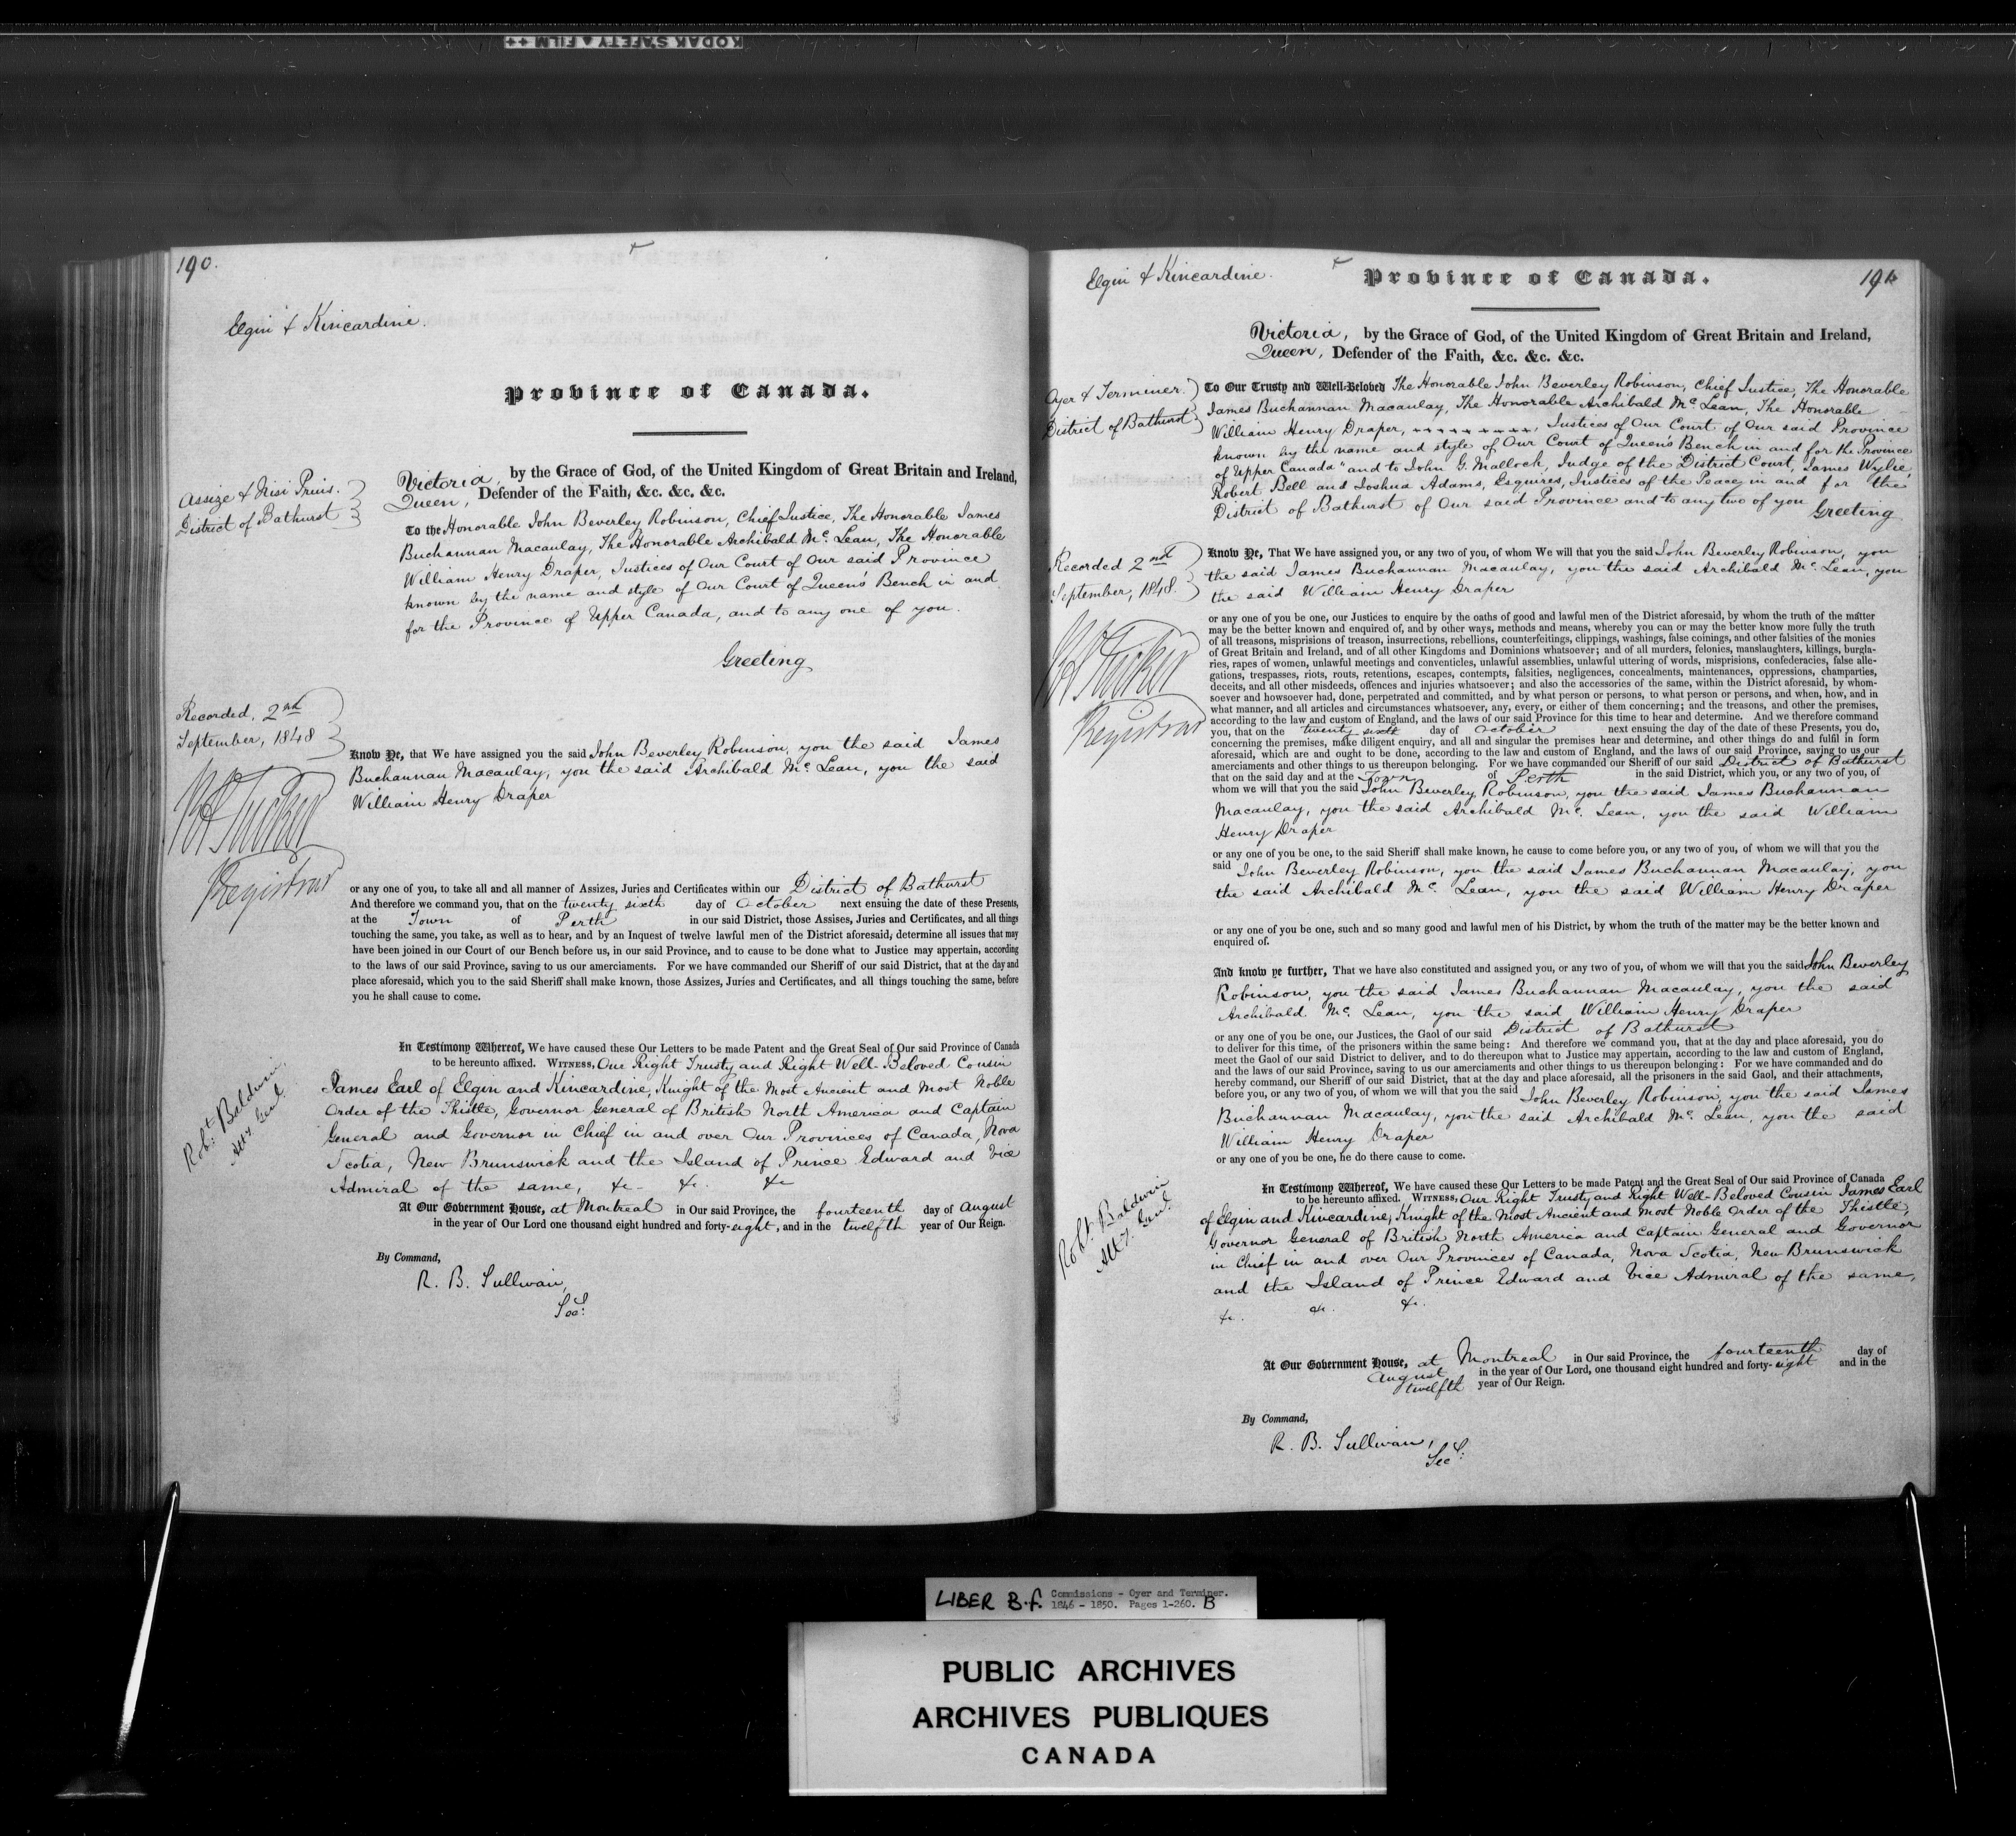 KODAK SAFETY FILM ++
190.
Elgin & Kincardine.
Province of Canada.
Assize & Nisi Prius.
District of Bathurst
Victoria, by the Grace of God, of the United Kingdom of Great Britain and Ireland,
Queen, Defender of the Faith, &c. &c. &c.
To the Honorable John Beverley Robinson, Chief Justice, The Honorable James
Buchannan Macaulay, The Honorable Archibald Mc. Lean, The Honorable
William Henry Draper, Justices of Our Court of Our said Province
known by the name and style of Our Court of Queen's Bench in and
for the Province of Upper Canada, and to any one of you.
Greeting
Recorded, 2nd
September, 1848
Know Ye, that We have assigned you the said John Beverley Robinson, you the said James
Buchannan Macaulay, you the said Archibald Mc. Lean, you the said
William Henry Draper
Tucker
Registrar
or any one of you, to take all and all manner of Assizes, Juries and Certificates within our District of Bathurst
And therefore we command you, that on the twenty sixth day of October next ensuing the date of these Presents,
at the Town of Perth in our said District, those Assises, Juries and Certificates, and all things
touching the same, you take, as well as to hear, and by an Inquest of twelve lawful men of the District aforesaid, determine all issues that may
have been joined in our Court of our Bench before us, in our said Province, and to cause to be done what to Justice may appertain, according
to the laws of our said Province, saving to us our amerciaments. For we have commanded our Sheriff of our said District, that at the day and
place aforesaid, which you to the said Sheriff shall make known, those Assizes, Juries and Certificates, and all things touching the same, before
you he shall cause to come.
In Testimony Whereof, We have caused these Our Letters to be made Patent and the Great Seal of Our said Province of Canada
to be hereunto affixed. WITNESS, Our Right Trusty and Right Well-Beloved Cousin
James Earl of Elgin and Kincardine, Knight of the Most Ancient and Most Noble
Order of the Thistle, Governor General of British North America and Captain
General and Governor in Chief in and over Our Provinces of Canada, Nova
Scotia, New Brunswick and the Island of Prince Edward and Vice
Admiral of the same, &c. &c. &c
Robt. Baldwin,
Atty. Genl.
At Our Government House, at Montreal in Our said Province, the fourteenth day of August
in the year of Our Lord one thousand eight hundred and forty-eight, and in the twelfth year of Our Reign.
By Command,
R. B. Sullivan,
Secy.
Elgin & Kincardine.
Province of Canada.
191
Victoria, by the Grace of God, of the United Kingdom of Great Britain and Ireland,
Queen, Defender of the Faith, &c. &c. &c.
Oyer & Terminer.
District of Bathurst
To Our Trusty and Well-Beloved The Honorable John Beverley Robinson, Chief Justice, The Honorable
James Buchannan Macaulay, The Honorable Archibald Mc. Lean, The Honorable
William Henry Draper, Justices of Our Court of Our said Province
known by the name and style of Our Court of Queen's Bench in and for the Province
of Upper Canada" and to John G. Malloch, Judge of the District Court, James Wylie,
Robert Bell and Joshua Adams, Esquires, Justices of the Peace in and for the
District of Bathurst of Our said Province and to any two of you Greeting
Recorded 2nd
September, 1848.
Know Ye, That We have assigned you, or any two of you, of whom We will that you the said John Beverley Robinson, you
the said James Buchannan Macaulay, you the said Archibald Mc. Lean, you
the said William Henry Draper
Tucker
Registrar
or any one of you be one, our Justices to enquire by the oaths of good and lawful men of the District aforesaid, by whom the truth of the matter
may be the better known and enquired of, and by other ways, methods and means, whereby you can or may the better know more fully the truth
of all treasons, misprisions of treason, insurrections, rebellions, counterfeitings, clippings, washings, false coinings, and other falsities of the monies
of Great Britain and Ireland, and of all other Kingdoms and Dominions whatsoever; and of all murders, felonies, manslaughters, killings, burgla-
ries, rapes of women, unlawful meetings and conventicles, unlawful assemblies, unlawful uttering of words, misprisions, confederacies, false alle-
gations, trespasses, riots, routs, retentions, escapes, contempts, falsities, negligences, concealments, maintenances, oppressions, champarties,
deceits, and all other misdeeds, offences and injuries whatsoever; and also the accessories of the same, within the District aforesaid, by whom-
soever and howsoever had, done, perpetrated and committed, and by what person or persons, to what person or persons, and when, how, and in
what manner, and all articles and circumstances whatsoever, any, every, or either of them concerning; and the treasons, and other the premises,
according to the law and custom of England, and the laws of our said Province for this time to hear and determine. And we therefore command
you, that on the twenty sixth day of October next ensuing the day of the date of these Presents, you do,
concerning the premises, make diligent enquiry, and all and singular the premises hear and determine, and other things do and fulfil in form
aforesaid, which are and ought to be done, according to the law and custom of England, and the laws of our said Province, saving to us our
amerciaments and other things to us thereupon belonging. For we have commanded our Sheriff of our said District of Bathurst
that on the said day and at the Town of Perth in the said District, which you, or any two of you, of
whom we will that you the said John Beverley Robinson, you the said James Buchannan
Macaulay, you the said Archibald Mc. Lean, you the said William
Henry Draper
or any one of you be one, to the said Sheriff shall make known, he cause to come before you, or any two of you, of whom we will that you the
said John Beverley Robinson, you the said James Buchannan Macaulay, you
the said Archibald Mc. Lean, you the said William Henry Draper
or any one of you be one, such and so many good and lawful men of his District, by whom the truth of the matter may be the better known and
enquired of.
And know ye further, That we have also constituted and assigned you, or any two of you, of whom we will that you the said John Beverley
Robinson, you the said James Buchannan Macaulay, you the said
Archibald Mc. Lean, you the said William Henry Draper
or any one of you be one, our Justices, the Gaol of our said District of Bathurst
to deliver for this time, of the prisoners within the same being: And therefore we command you, that at the day and place aforesaid, you do
meet the Gaol of our said District to deliver, and to do thereupon what to Justice may appertain, according to the law and custom of England,
and the laws of our said Province, saving to us our amerciaments and other things to us thereupon belonging: For we have commanded and do
hereby command, our Sheriff of our said District, that at the day and place aforesaid, all the prisoners in the said Gaol, and their attachments,
before you, or any two of you, of whom we will that you the said John Beverley Robinson, you the said James
Buchannan Macaulay, you the said Archibald Mc. Lean, you the said
William Henry Draper
or any one of you be one, he do there cause to come.
In Testimony Whereof, We have caused these Our Letters to be made Patent and the Great Seal of Our said Province of Canada
to be hereunto affixed. WITNESS, Our Right Trusty and Right Well-Beloved Cousin James Earl
of Elgin and Kincardine, Knight of the Most Ancient and Most Noble Order of the Thistle,
Governor General of British North America and Captain General and Governor
in Chief in and over Our Provinces of Canada, Nova Scotia, New Brunswick
and the Island of Prince Edward and Vice Admiral of the same,
&c. &c. &c.
Robt. Baldwin
Atty. Genl.
At Our Government House, at Montreal in Our said Province, the fourteenth day of
August in the year of Our Lord, one thousand eight hundred and forty-eight and in the
twelfth year of Our Reign.
By Command,
R. B. Sullivan,
Secy.
LIBER B.f. Commissions - Oyer and Terminer.
1846 - 1850. Pages 1-260. B
PUBLIC ARCHIVES
ARCHIVES PUBLIQUES
CANADA